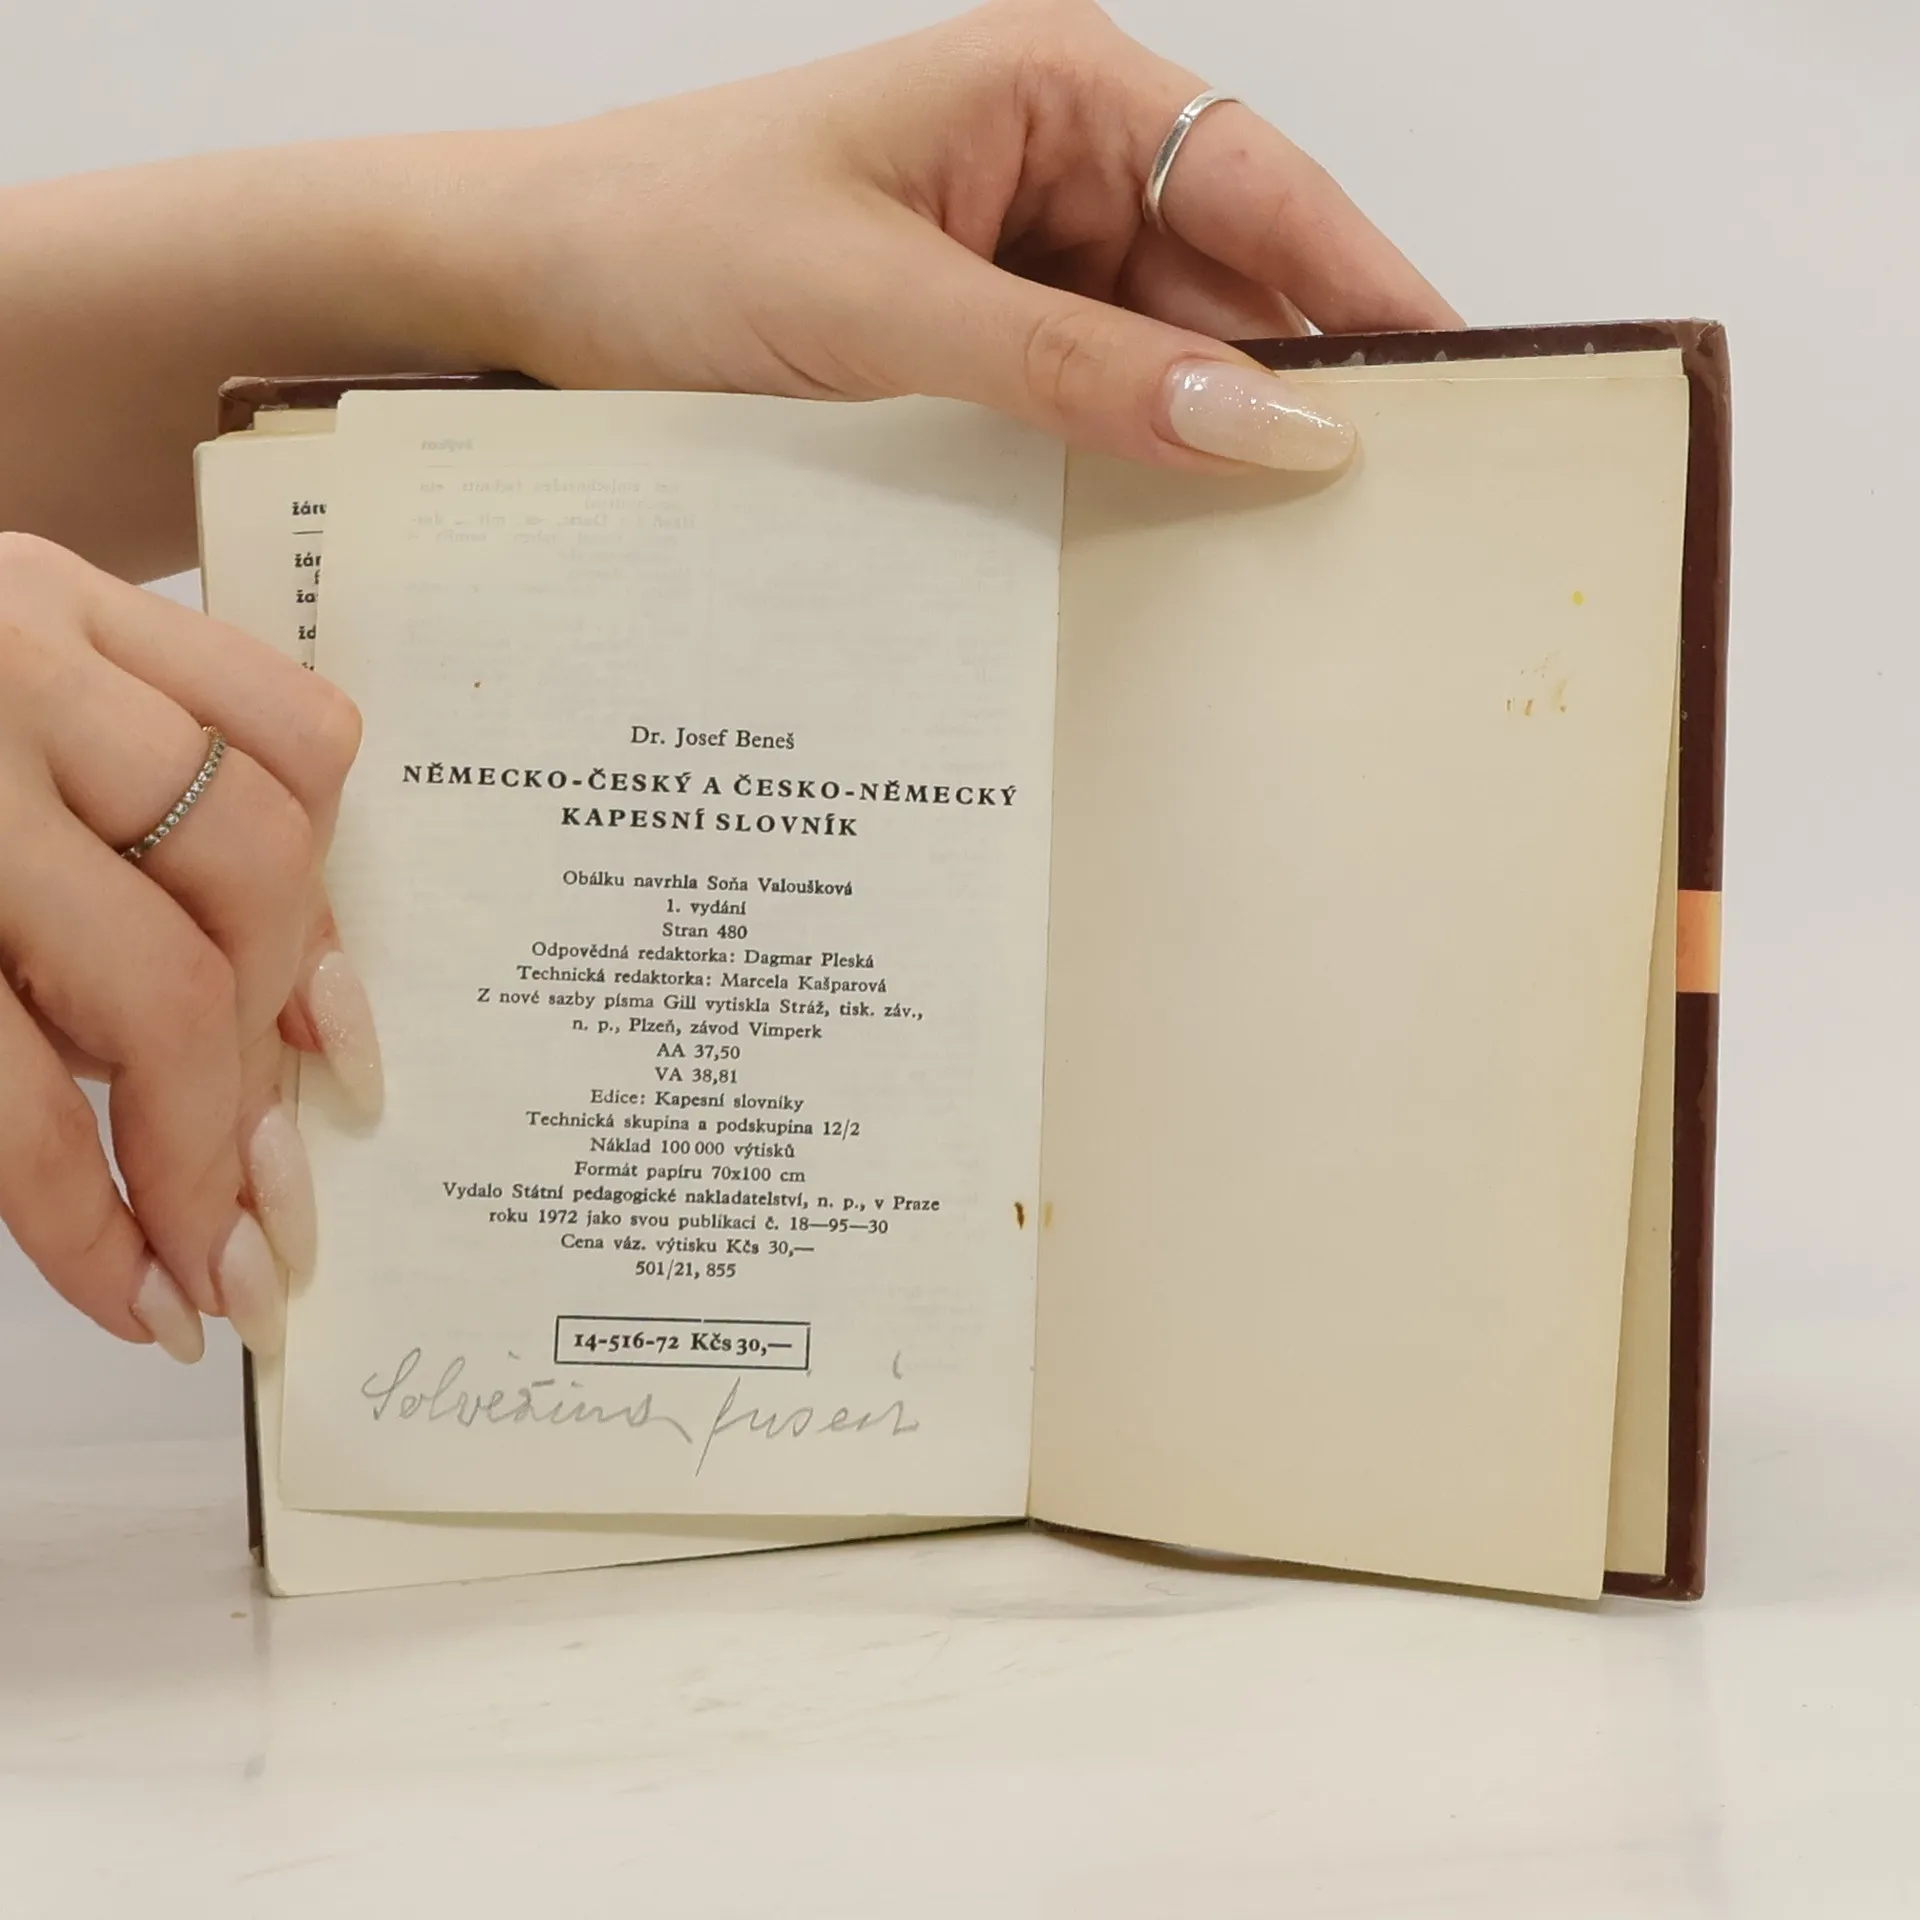 žáru
žár
f
ža
žd
Dr. Josef Beneš
NĚMECKO-ČESKÝ A ČESKO-NĚMECKÝ
KAPESNÍ SLOVNÍK
Obálku navrhla Soňa Valoušková
1. vydání
Stran 480
Odpovědná redaktorka: Dagmar Pleská
Technická redaktorka: Marcela Kašparová
Z nové sazby písma Gill vytiskla Stráž, tisk. záv.,
n. p., Plzeň, závod Vimperk
AA 37,50
VA 38,81
Edice: Kapesní slovníky
Technická skupina a podskupina 12/2
Náklad 100 000 výtisků
Formát papíru 70x100 cm
Vydalo Státní pedagogické nakladatelství, n. p., v Praze
roku 1972 jako svou publikaci č. 18—95—30
Cena váz. výtisku Kčs 30,—
501/21, 855
14-516-72 Kčs 30,—